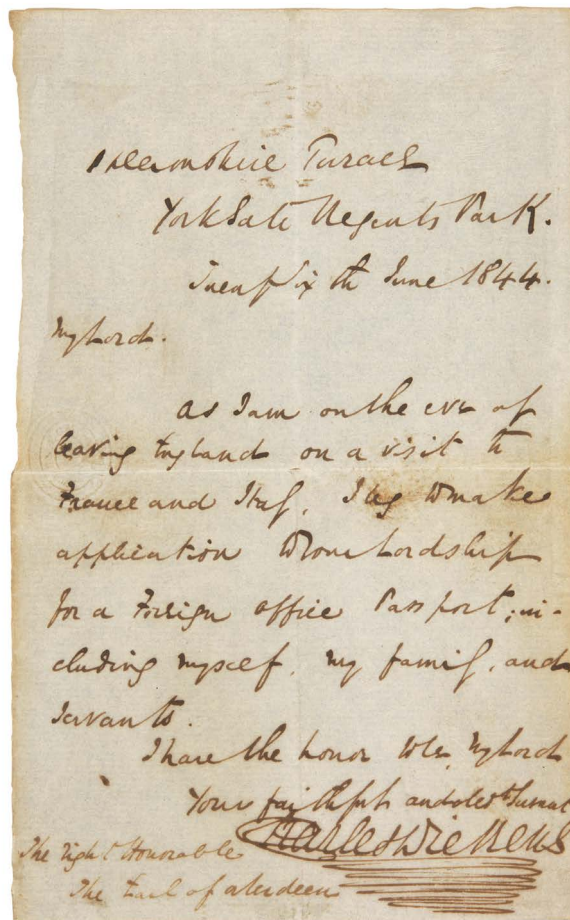 1 Devonshire Terrace
York Gate Regents Park.
Sixth June 1844.
My Lord.
As I am on the eve of
leaving England on a visit to
France and Italy, I beg to make
application to your Lordship
for a Foreign office Passport; in-
cluding myself, my family, and
servants.
I have the honor to be, My Lord
Your faithful and obedt Servant
Charles Dickens
The Right Honorable
The Earl of Aberdeen